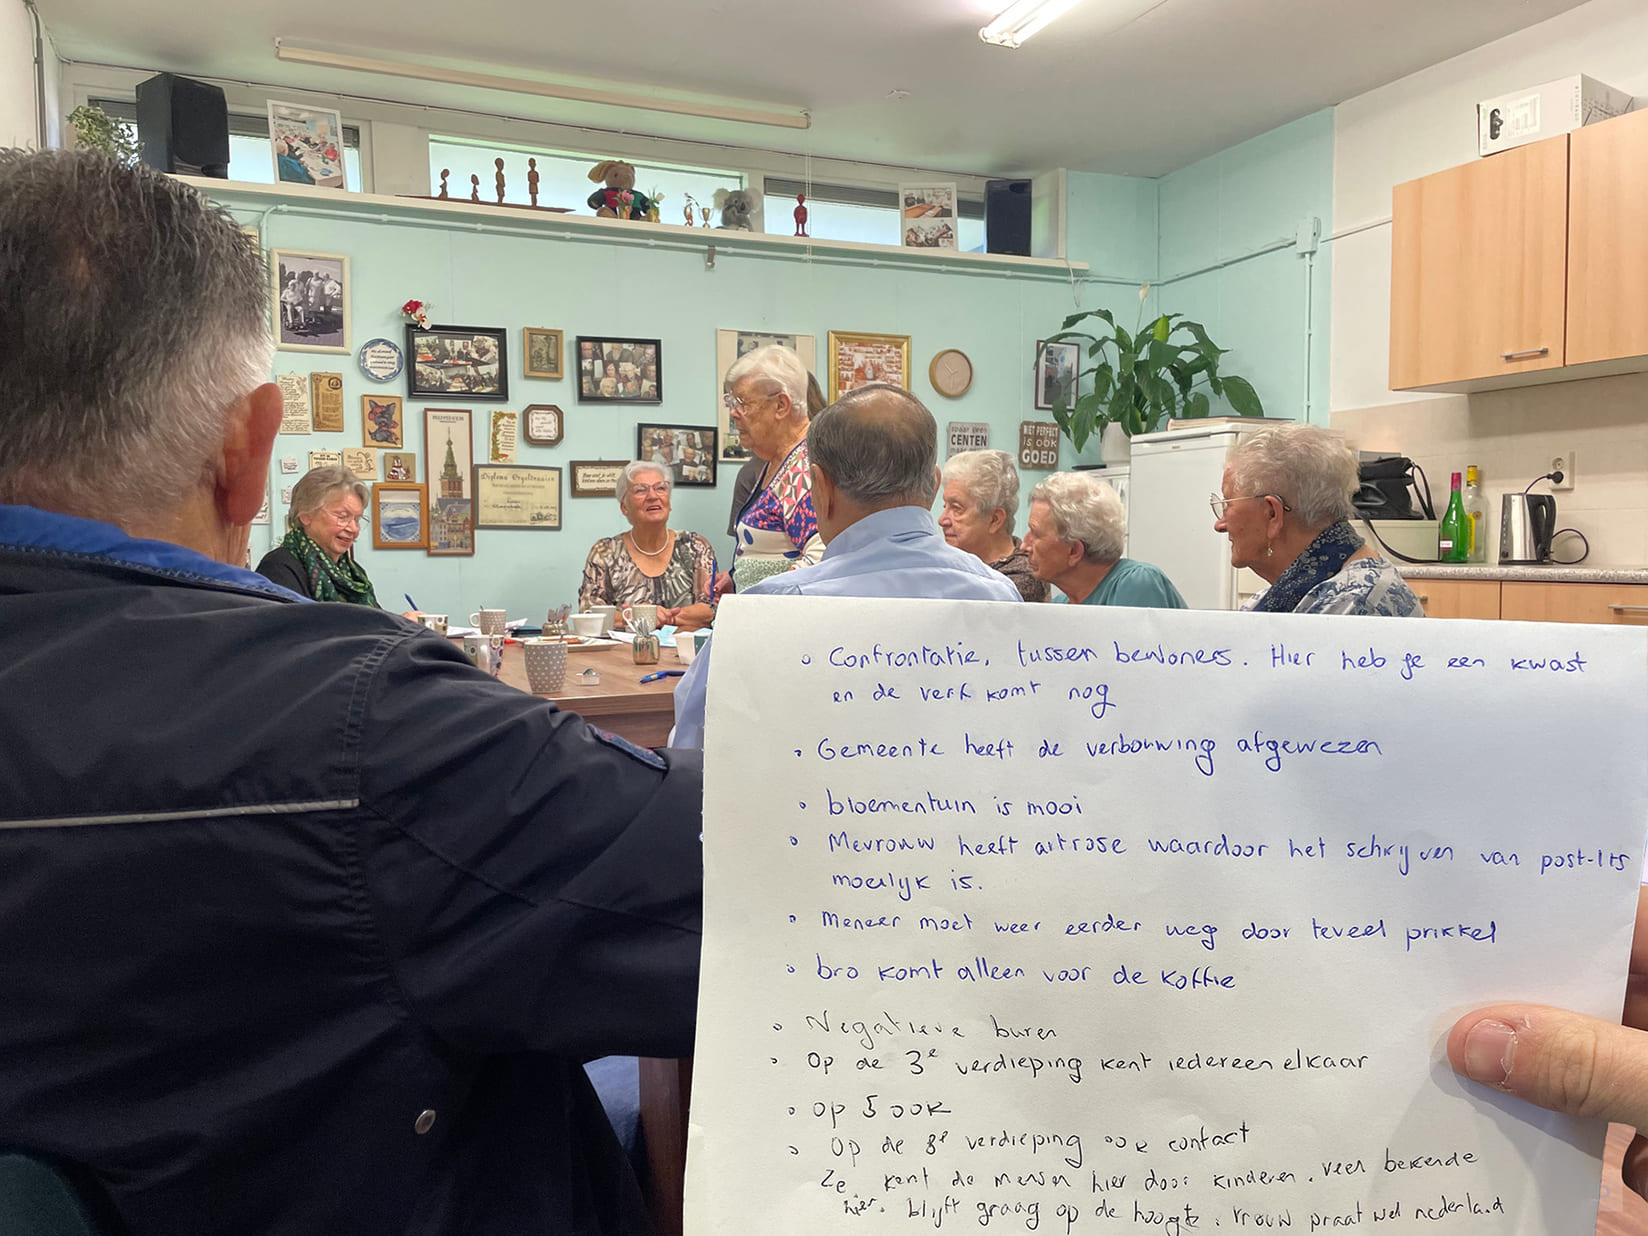 Diploma Orgeldraaien
spaar geen
CENTEN
NIET PERFECT
is OOK
GOED
◦ Confrontatie, tussen bewoners. Hier heb je een kwast
en de verf komt nog
◦ Gemeente heeft de verbouwing afgewezen
◦ bloementuin is mooi
◦ Mevrouw heeft artrose waardoor het schrijven van post-its
moeilijk is.
◦ Meneer moet weer eerder weg door teveel prikkel
◦ bro komt alleen voor de koffie
◦ Negatieve buren
◦ Op de 3e verdieping kent iedereen elkaar
◦ Op 5 ook
◦ Op de 8e verdieping ook contact
Ze kent de mensen hier door kinderen. veel bekende
hier. blijft graag op de hoogte. vrouw praat wel nederland